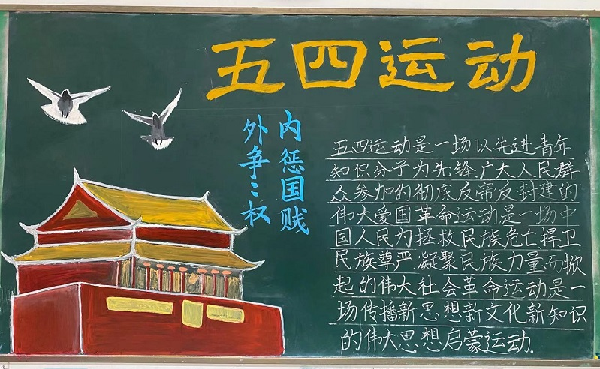 五四运动
外争主权
内惩国贼
五四运动是一场以先进青年
知识分子为先锋,广大人民群
众参加的彻底反帝反封建的
伟大爱国革命运动是一场中
国人民为拯救民族危亡捍卫
民族尊严凝聚民族力量而掀
起的伟大社会革命运动是一
场传播新思想新文化新知识
的伟大思想启蒙运动.